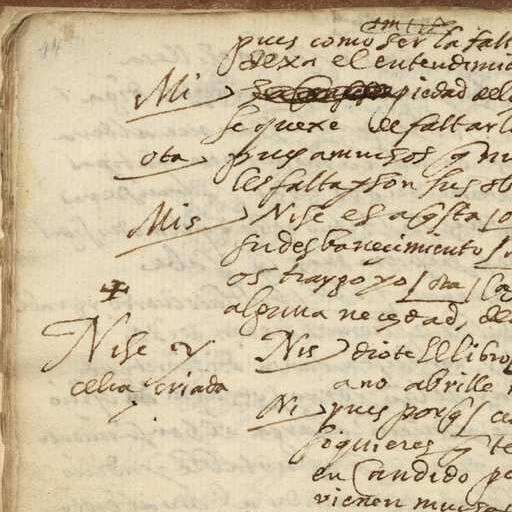 14
pues como ser la falt
dexa el entendimie
Mi piedad del
se quexe de faltarl
ota pues a muchos q nu
les falta y son sus ob
Mis Nise es aqsta | o
su desbanecimiento |
os traygo yo | ota | Ca
alguna necedad, de
Nise y
celia criada
Nis diote el libro
a no abrille
Ni pues porq | ce
si quieres q te
en Candido pe
vienen muchos